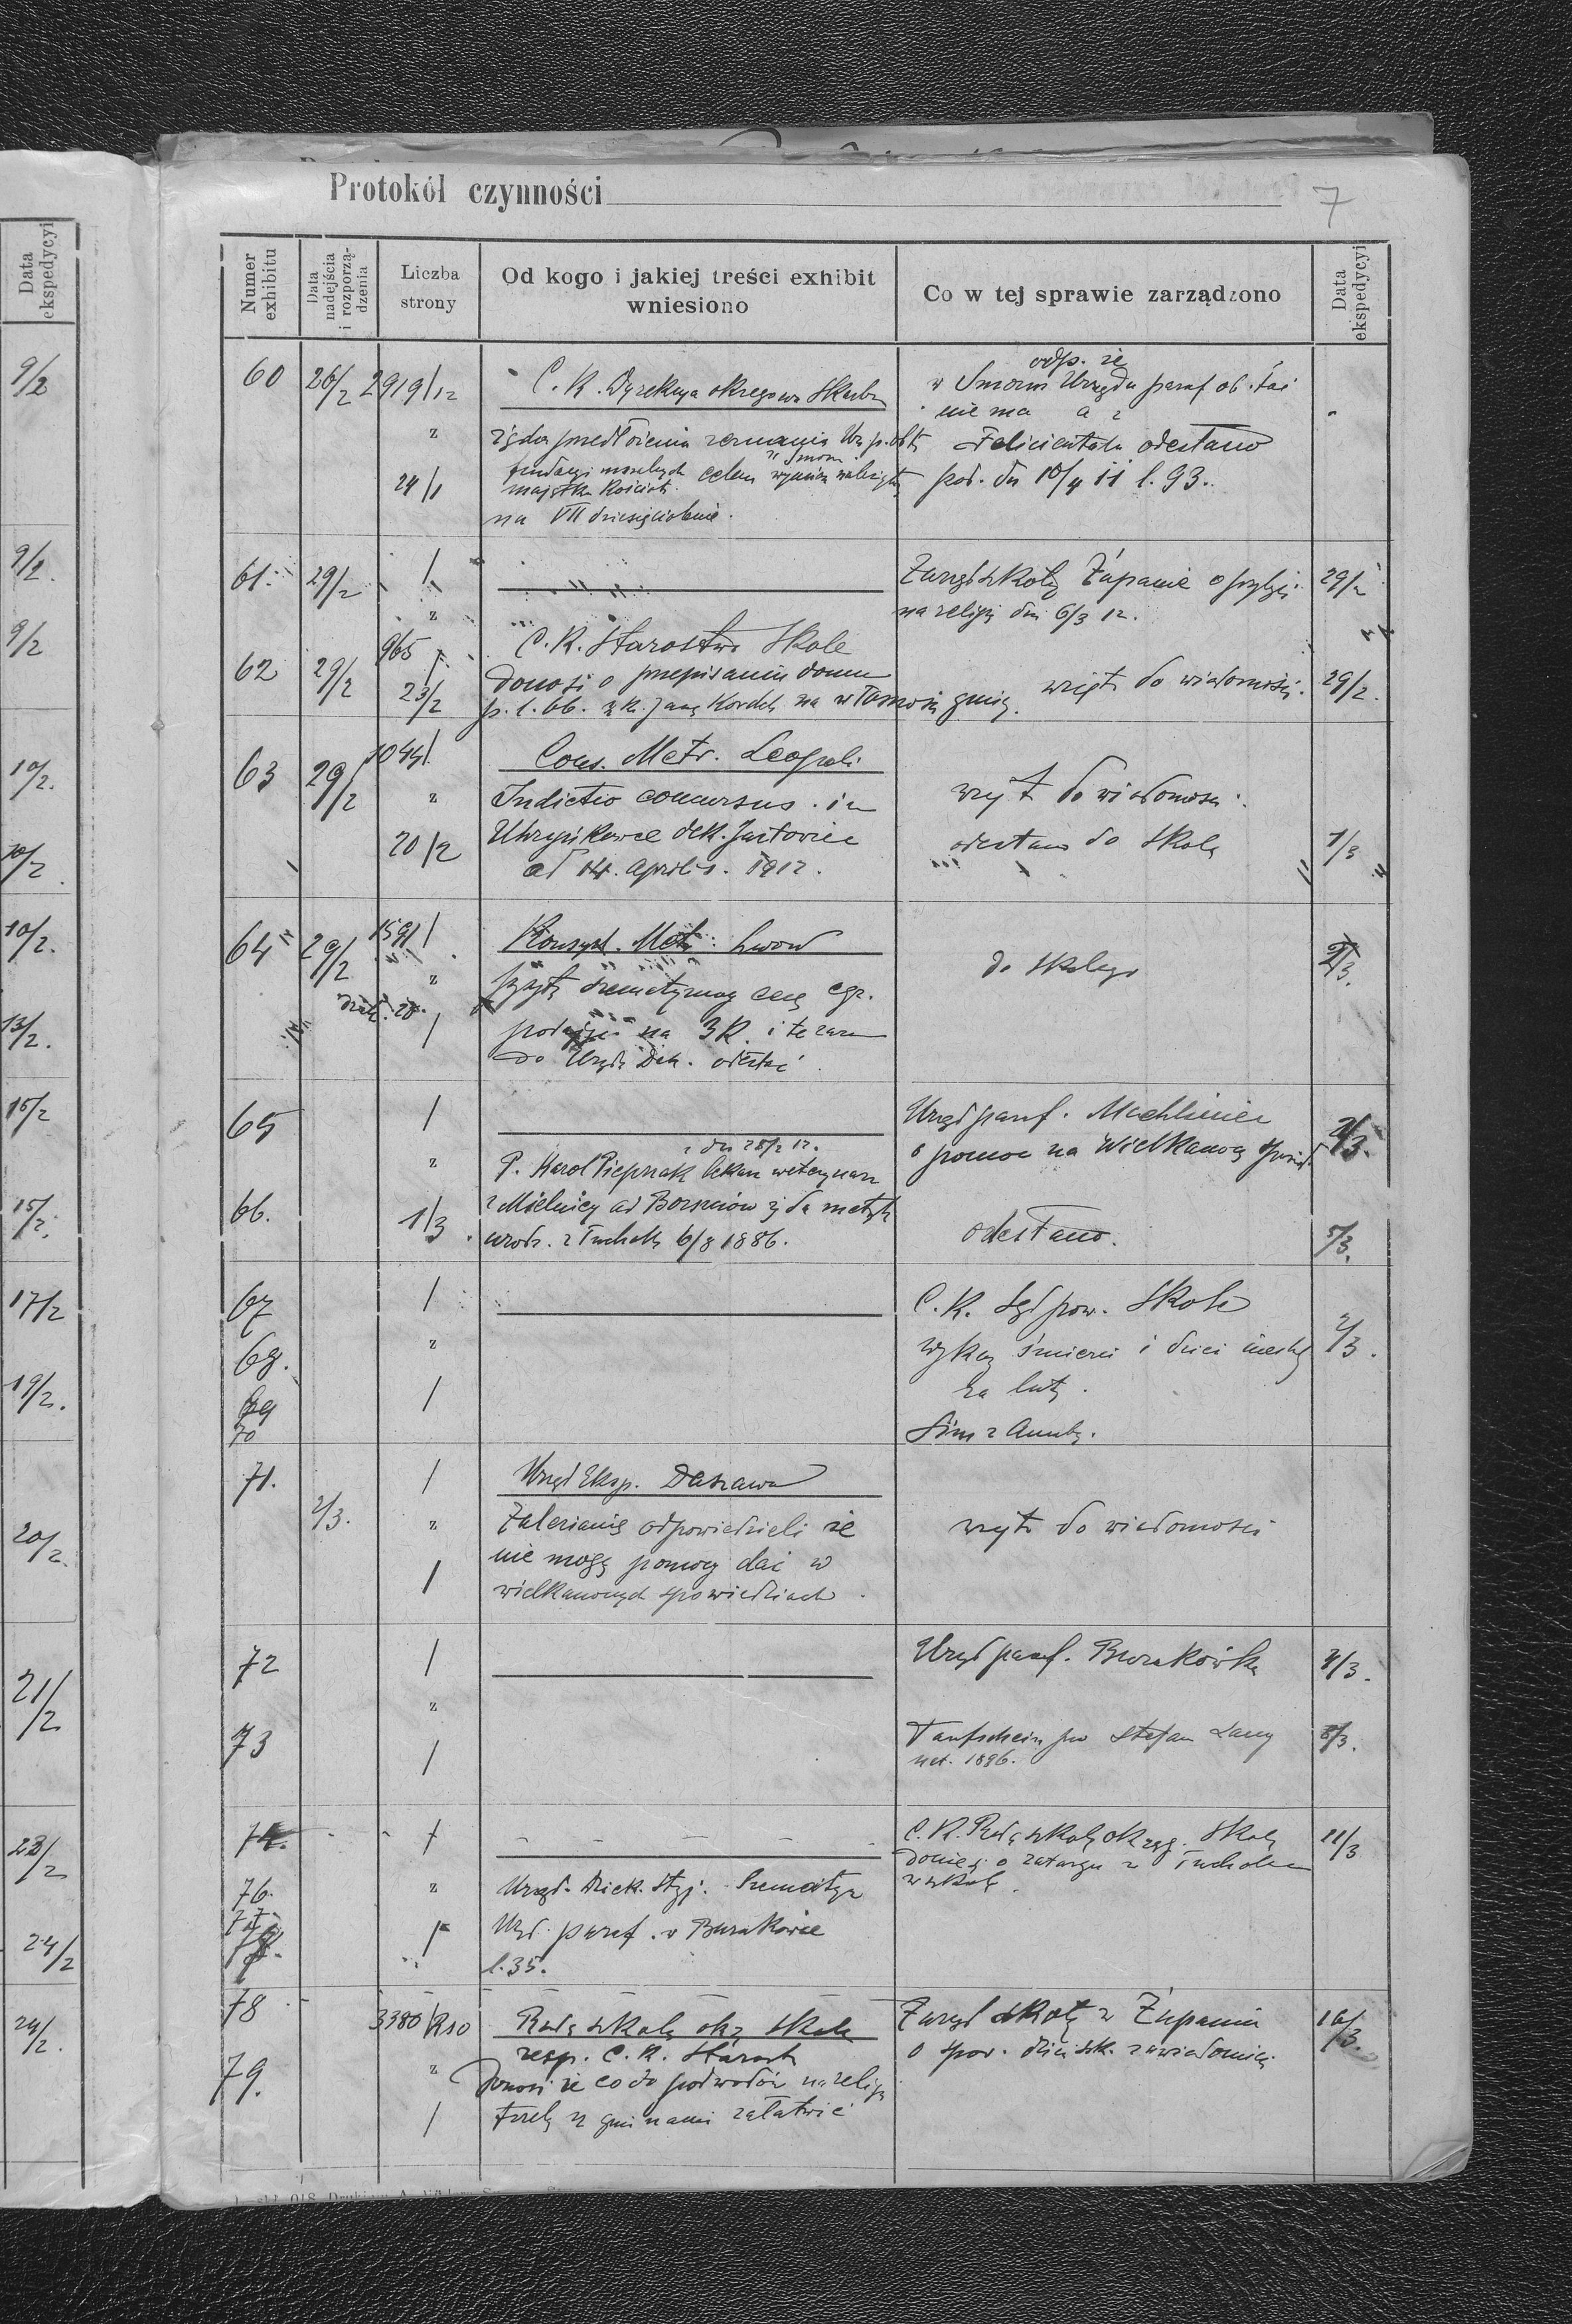 Data ekspedycyi
9/2
9/2.
9/2
10/2.
10/2.
10/2.
13/2.
15/2
15/2.
17/2
19/2.
20/2.
21/2
23/2
24/2
24/2.
Protokół czynności
7
Numer exhibitu
Data nadejścia i rozporzą-dzenia
Liczba strony
Od kogo i jakiej treści exhibit wniesiono
Co w tej sprawie zarządzono
Data ekspedycyi
60 26/2 2919/12 C. K. Dyrekcya okręgowa Skarbu
z
24/1
na VII dziesięciolecie.
odp. że
w Smorzu Urzędu paraf ob. łać
nie ma a z
Felicientalu odesłano
pod. dn 10/4 11 l. 93.
61. 29/2 /
z
Zarząd szkoły Żupanie o przybyci
na religię dn 6/3 12.
29/2
62 29/2 965/ C. K. Starostwo Skole
23/2 donosi o przepisaniu domu
p. l. 66. na własność gminy.
wzięto do wiadomości.
29/2.
63 29/2 1044/ Cons. Metr. Leopoli
z Indictio concursus. in
20/2 Uhryńkowce dek. Jazłowiec
ad 14. Aprilis. 1912.
wzięto do wiadomości.
odesłano do Skolego
1/3
64 29/2 1591/ Konsyst. Metr. Lwów
z
/ na 3 K. i te zaraz
do Urzędu Dek. odesłać
do Skolego
2/3.
65 /
z
Urząd paraf. Machliniec
o pomoc na Wielkanocną spowiedź
2/3.
z dn 28/2 12.
66. 1/3 P. Karol Piepszak lekarz weterynarz
z Mielnicy ad Borszczów żąda metryki
urodz. z Tucholki 6/8 1886.
odesłano.
5/3.
67 /
68. z
69 /
70
C. K. Sąd pow. Skole
wykaz śmierci i dzieci nieślub
za luty.
2/3.
71. 2/3. / Urząd Eksp. Daszawa
z Zalesianie odpowiedzieli że
/ nie mogą pomocy dać w
wielkanocnych spowiedziach.
wzięto do wiadomości
72 /
z
Urząd paraf. Burakówka
4/3.
73 /
Taufschein pro Stefan Lang
nat. 1896.
8/3.
74. /
C. K. Rada szkolna okręg. Skole
donieść o zatargu z Tucholce
w szkole.
11/3
76. z Urząd. Dziek. Stryj. Szematyzm
77. / Urząd. paraf. w Burakówce
l. 35.
78 3380/R10 Rada szkolna okr. Skole
resp. C. K. Starost
79. z Donosi że co do podwodów na religię
/ trzeba z gminami załatwić
Zarząd szkoły w Żupaniu
o spow. dzieci szk. zawiadomić.
16/3.